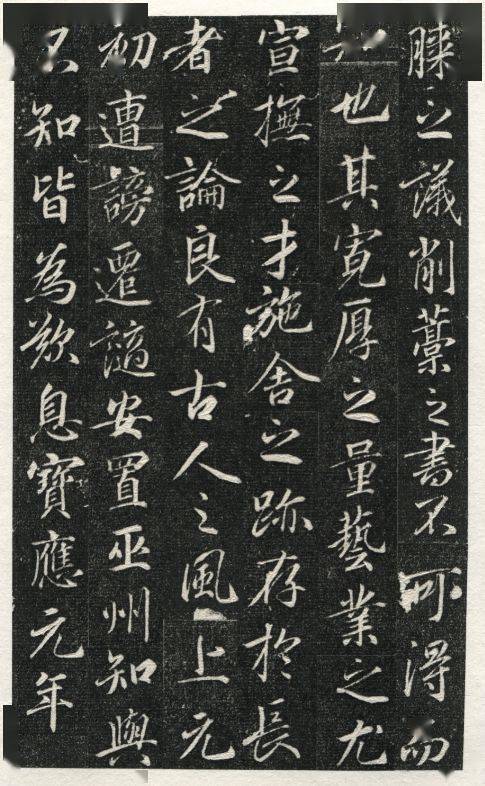 之議削藁之書不可得而
也其寬厚之量藝業之尤
宣撫之才施舍之跡存於長
者之論良有古人之風上元
初遭謗遷謫安置巫州知與
不知皆為歎息寶應元年